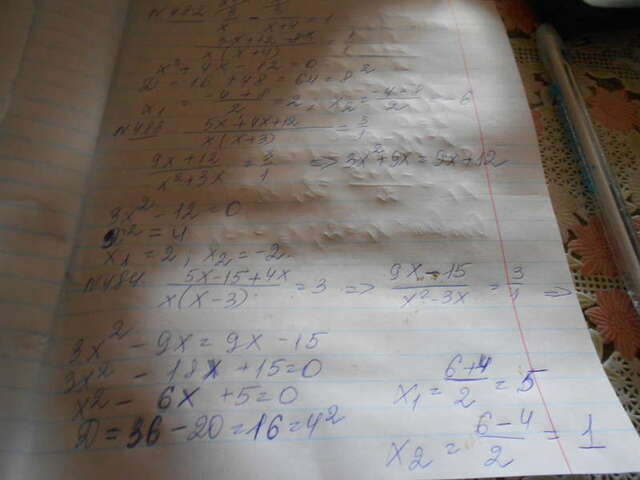 x² + 4x - 12 = 0
D = 16 + 48 = 64 = 8²
x₁ = (-4+8)/2 = 2, x₂ = = -6
(5x+4x+12)/(x(x+3)) = 3/1
(9x+12)/(x²+3x) = 3/1 => 3x² + 9x = 9x + 12
3x² - 12 = 0
x² = 4
x₁ = 2, x₂ = -2
N484 (5x-15+4x)/(x(x-3)) = 3 => (9x-15)/(x²-3x) = 3/1 =>
3x² - 9x = 9x - 15
3x² - 18x + 15 = 0
x² - 6x + 5 = 0
D = 36 - 20 = 16 = 4²
x₁ = (6+4)/2 = 5
x₂ = (6-4)/2 = 1